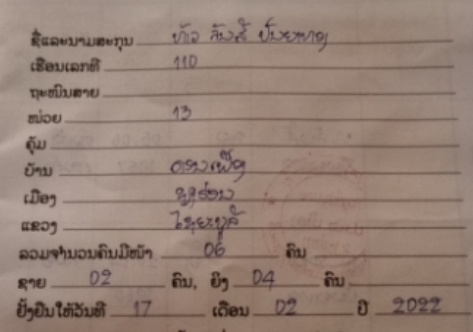 ຊື່ແລະນາມສະກຸນ ທ້າວ ສົມສີ ປັນຍາທອງ
ເຮືອນເລກທີ 110
ຖະໜົນສາຍ
ໜ່ວຍ 13
ຄຸ້ມ
ບ້ານ
ເມືອງ
ແຂວງ ໄຊຍະບູລີ
ລວມຈຳນວນຄົນມີໜ້າ 06 ຄົນ
ຊາຍ 02 ຄົນ, ຍິງ 04 ຄົນ
ຢັ້ງຢືນໃຫ້ວັນທີ 17 ເດືອນ 02 ປີ 2022